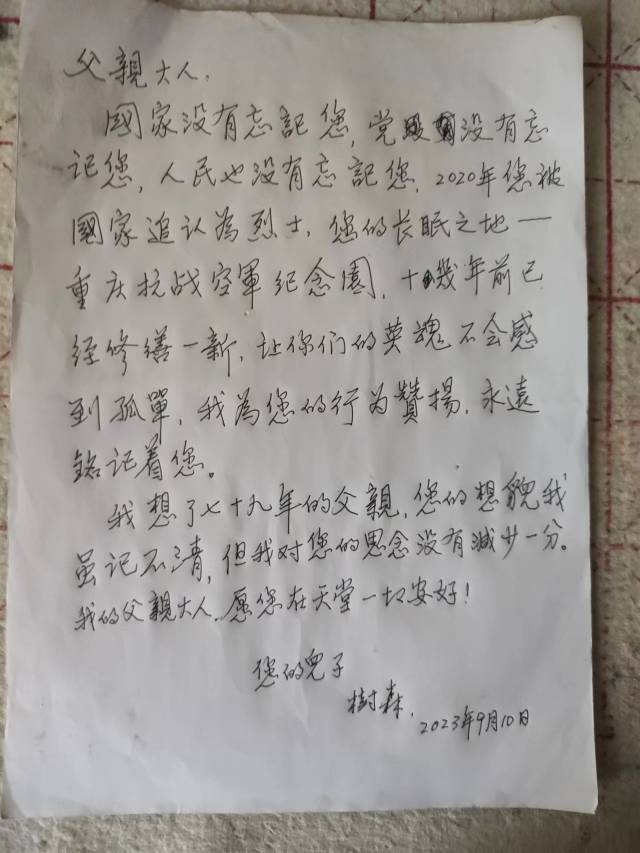 父親大人.
國家没有忘記您,党没有忘
记您,人民也没有忘記您.2020年您被
國家追认為烈士.您的长眠之地——
重庆抗战空軍纪念園,十幾年前已
经修缮一新,让你们的英魂不会感
到孤單,我為您的行为贊揚.永遠
銘记着您。
我想了七十九年的父親,您的想貌我
虽记不清,但我对您的思念没有減少一分。
我的父親大人.愿您在天堂一切安好!
您的兒子
樹森.
2023年9月10日